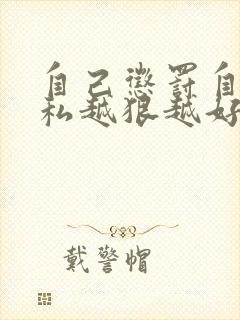 自己惩罚自
私越狠越好
戴警帽